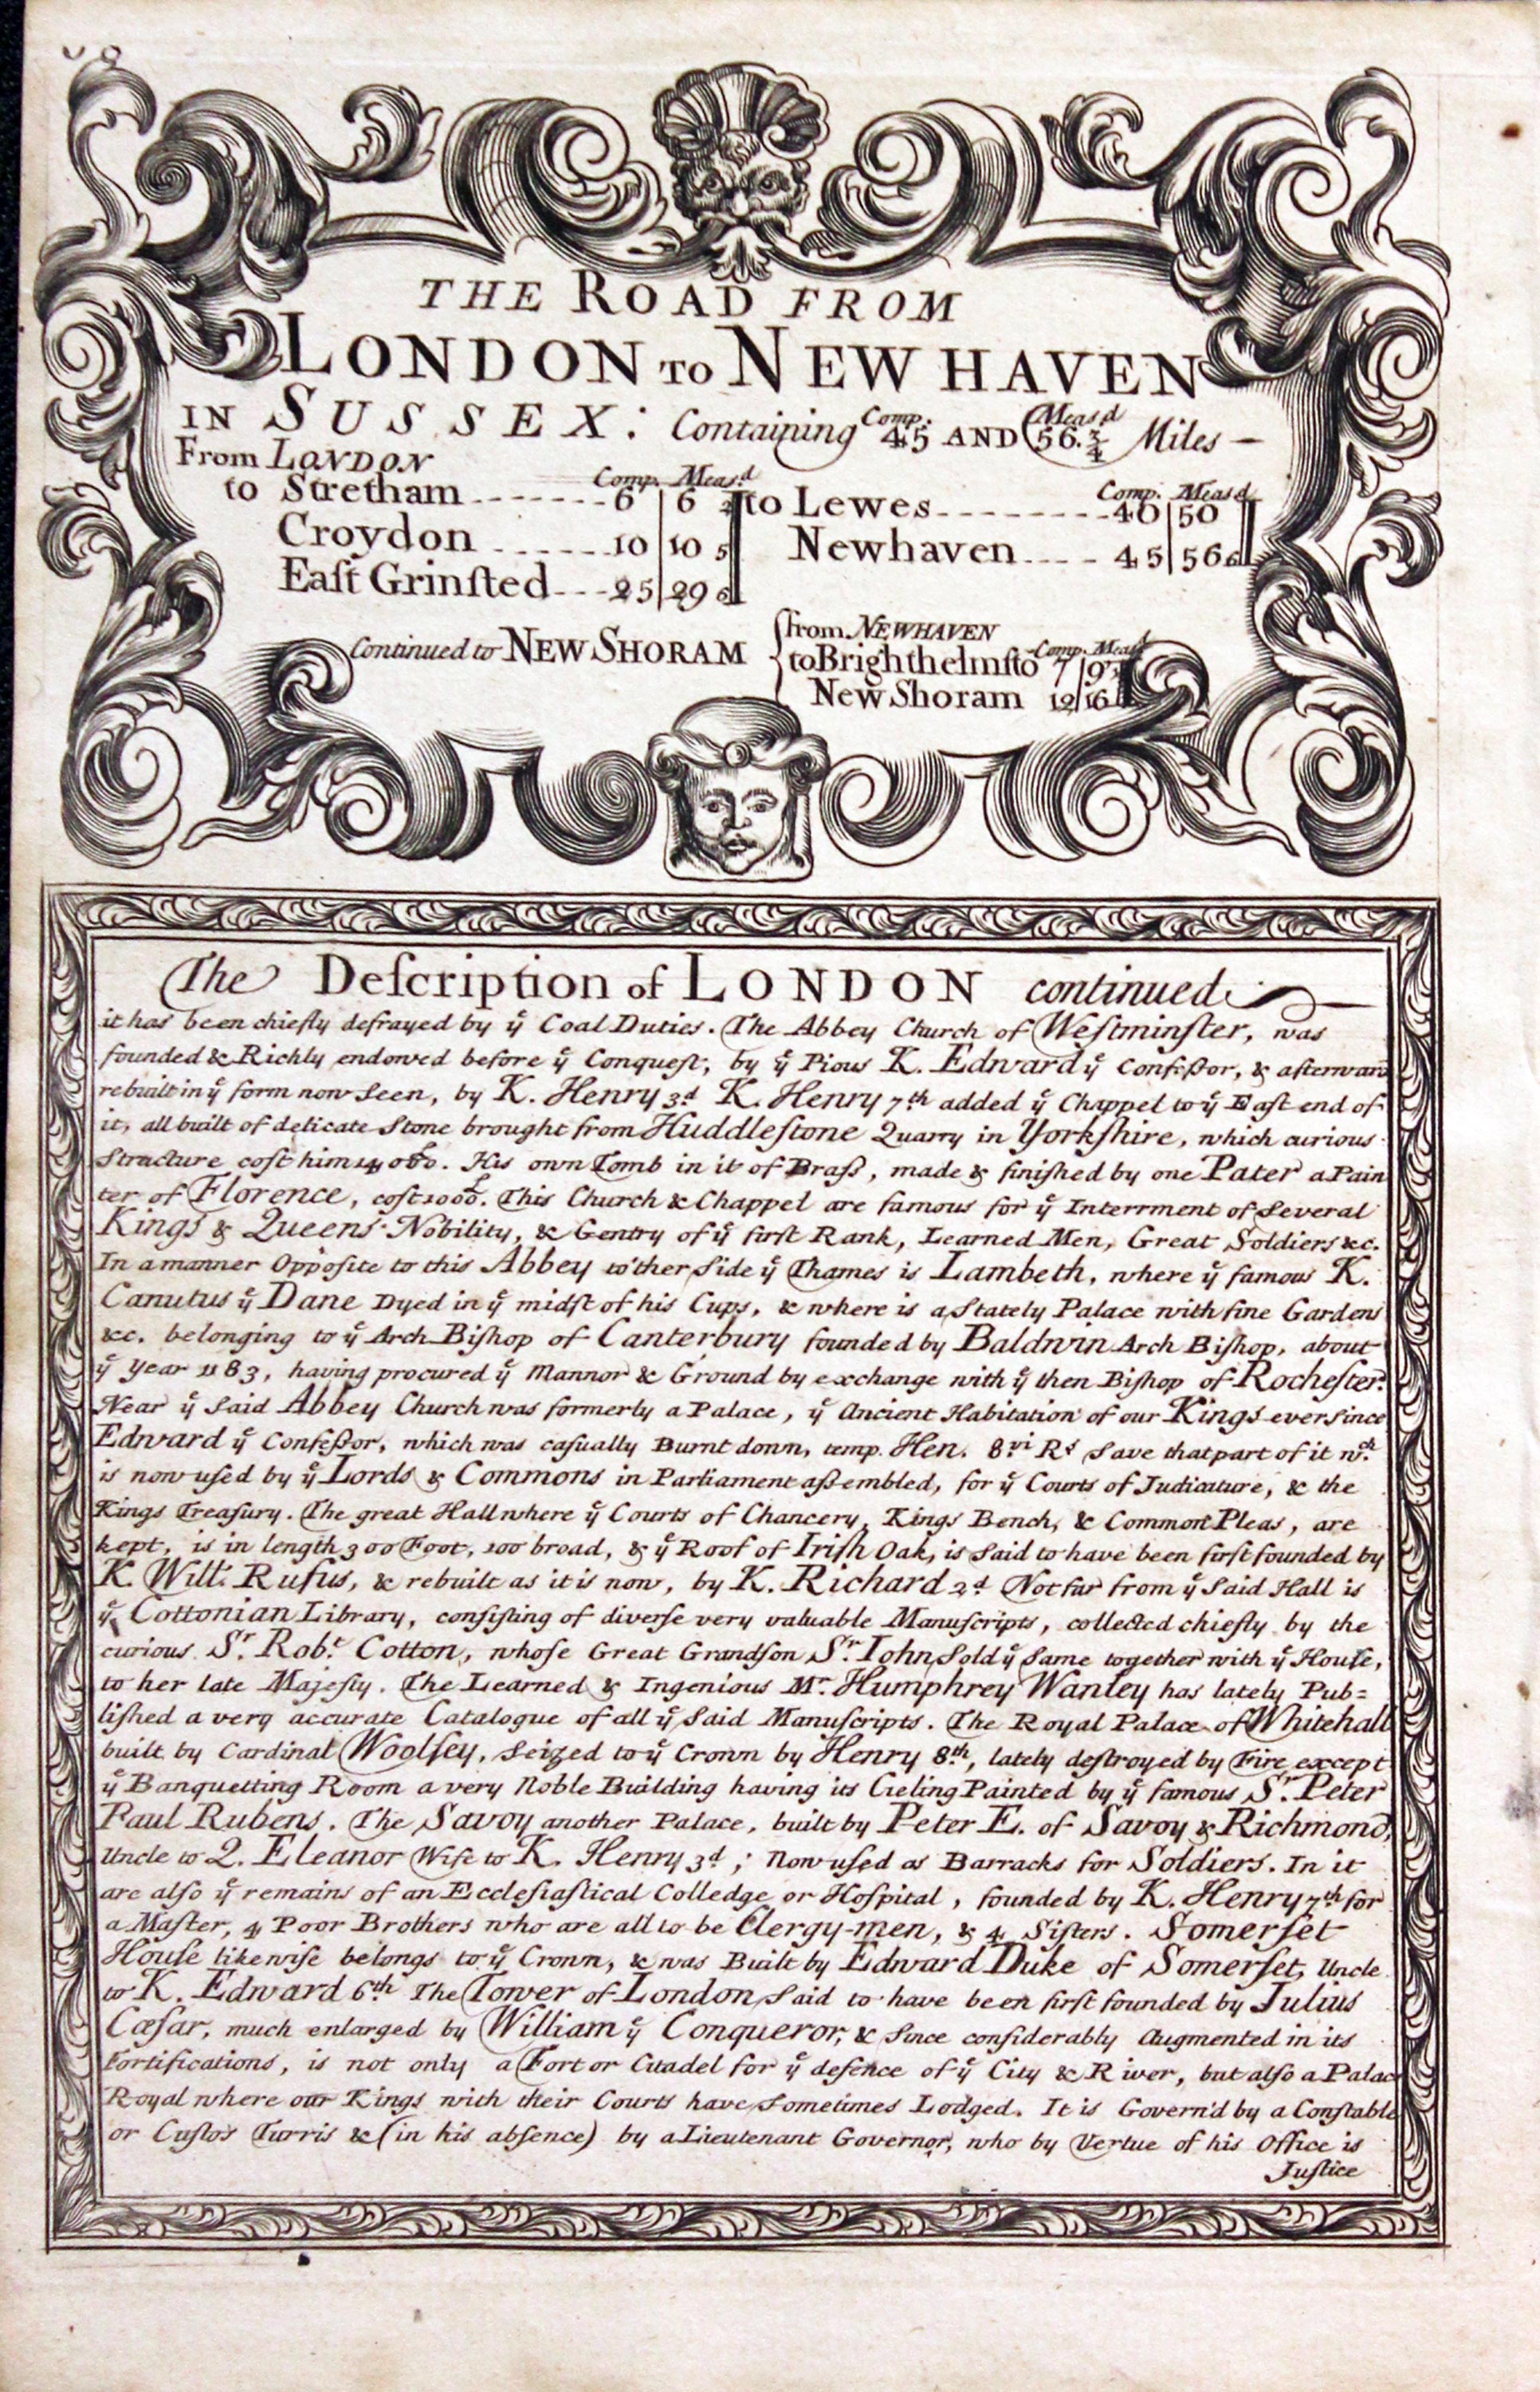 THE ROAD FROM
LONDON TO NEW HAVEN
IN SUSSEX: Containing Comp. 45 AND Meas'd 56.¾ Miles
From LONDON
Comp. Meas.d
to Stretham 6 | 6
Croydon 10 | 10 5
East Grinsted 25 | 29 6
Comp. Meas'd
to Lewes 40 | 50
Newhaven 45 | 56 6
Continued to NEW SHORAM
from NEWHAVEN
Comp. Meas'd
to Brighthelmsto 7 | 9
New Shoram 12 | 16
The Deſcription of LONDON continued
it has been chiefly defrayed by yͤ Coal Duties. The Abbey Church of Weſtminſter, was
founded & Richly endowed before yͤ Conqueſt, by yͤ Pious K. Edward yͤ Confeſsor, & afterward
rebuilt in yͤ form now Seen, by K. Henry 3.d K. Henry 7th added yͤ Chappel to yͤ East end of
it, all built of delicate Stone brought from Huddleſtone Quarry in Yorkſhire, which curious
Structure coſt him 14000£. His own Tomb in it of Braſs, made & finiſhed by one Pater a Pain
ter of Florence, coſt 1000£. This Church & Chappel are famous for yͤ Interrment of Several
Kings & Queens Nobility, & Gentry of yͤ firſt Rank, Learned Men, Great Soldiers &c.
In a manner Oppoſite to this Abbey to'ther Side yͤ Thames is Lambeth, where yͤ famous K.
Canutus yͤ Dane Dyed in yͤ midſt of his Cups, & where is a Stately Palace with fine Gardens
&c. belonging to yͤ Arch Biſhop of Canterbury founded by Baldwin Arch Biſhop, about
yͤ Year 1183, having procured yͤ Mannor & Ground by exchange with yͤ then Biſhop of Rocheſter.
Near yͤ Said Abbey Church was formerly a Palace, yͤ Ancient Habitation of our Kings ever Since
Edward yͤ Confeſsor, which was caſually Burnt down, temp. Hen. 8.vi Rs Save that part of it wch
is now uſed by yͤ Lords & Commons in Parliament aſsembled, for yͤ Courts of Judicature, & the
Kings Treaſury. The great Hall where yͤ Courts of Chancery, Kings Bench, & Common Pleas, are
kept, is in length 300 Foot, 100 broad, & yͤ Roof of Iriſh Oak, is Said to have been firſt founded by
K. Will: Rufus, & rebuilt as it is now, by K. Richard 2d Not far from yͤ Said Hall is
yͤ Cottonian Library, conſiſting of diverſe very valuable Manuſcripts, collected chiefly by the
curious Sr. Robt. Cotton, whoſe Great Grandſon Sr. Iohn Sold yͤ Same together with yͤ Houſe,
to her late Majeſty. The Learned & Ingenious Mr. Humphrey Wanley has lately Pub=
liſhed a very accurate Catalogue of all yͤ Said Manuſcripts. The Royal Palace of Whitehall
built by Cardinal Woolſey, Seized to yͤ Crown by Henry 8th, lately deſtroyed by Fire except
yͤ Banquetting Room a very Noble Building having its Cieling Painted by yͤ famous Sr. Peter
Paul Rubens. The Savoy another Palace, built by Peter E. of Savoy & Richmond,
Uncle to Q. Eleanor Wife to K. Henry 3d; Now uſed as Barracks for Soldiers. In it
are alſo yͤ remains of an Eccleſiaſtical Colledge or Hoſpital, founded by K. Henry 7th for
a Maſter, 4 Poor Brothers who are all to be Clergy-men, & 4 Siſters. Somerſet
Houſe likewiſe belongs to yͤ Crown, & was Built by Edward Duke of Somerſet, Uncle
to K. Edward 6th The Tower of London, Said to have been firſt founded by Julius
Cæſar, much enlarged by William yͤ Conqueror, & Since conſiderably Augmented in its
Fortifications, is not only a Fort or Citadel for yͤ defence of yͤ City & River, but alſo a Palac
Royal where our Kings with their Courts have Sometimes Lodged. It is Govern'd by a Conſtable
or Cuſtos Turris & (in his abſence) by a Lieutenant Governor, who by Vertue of his Office is
Juſtice